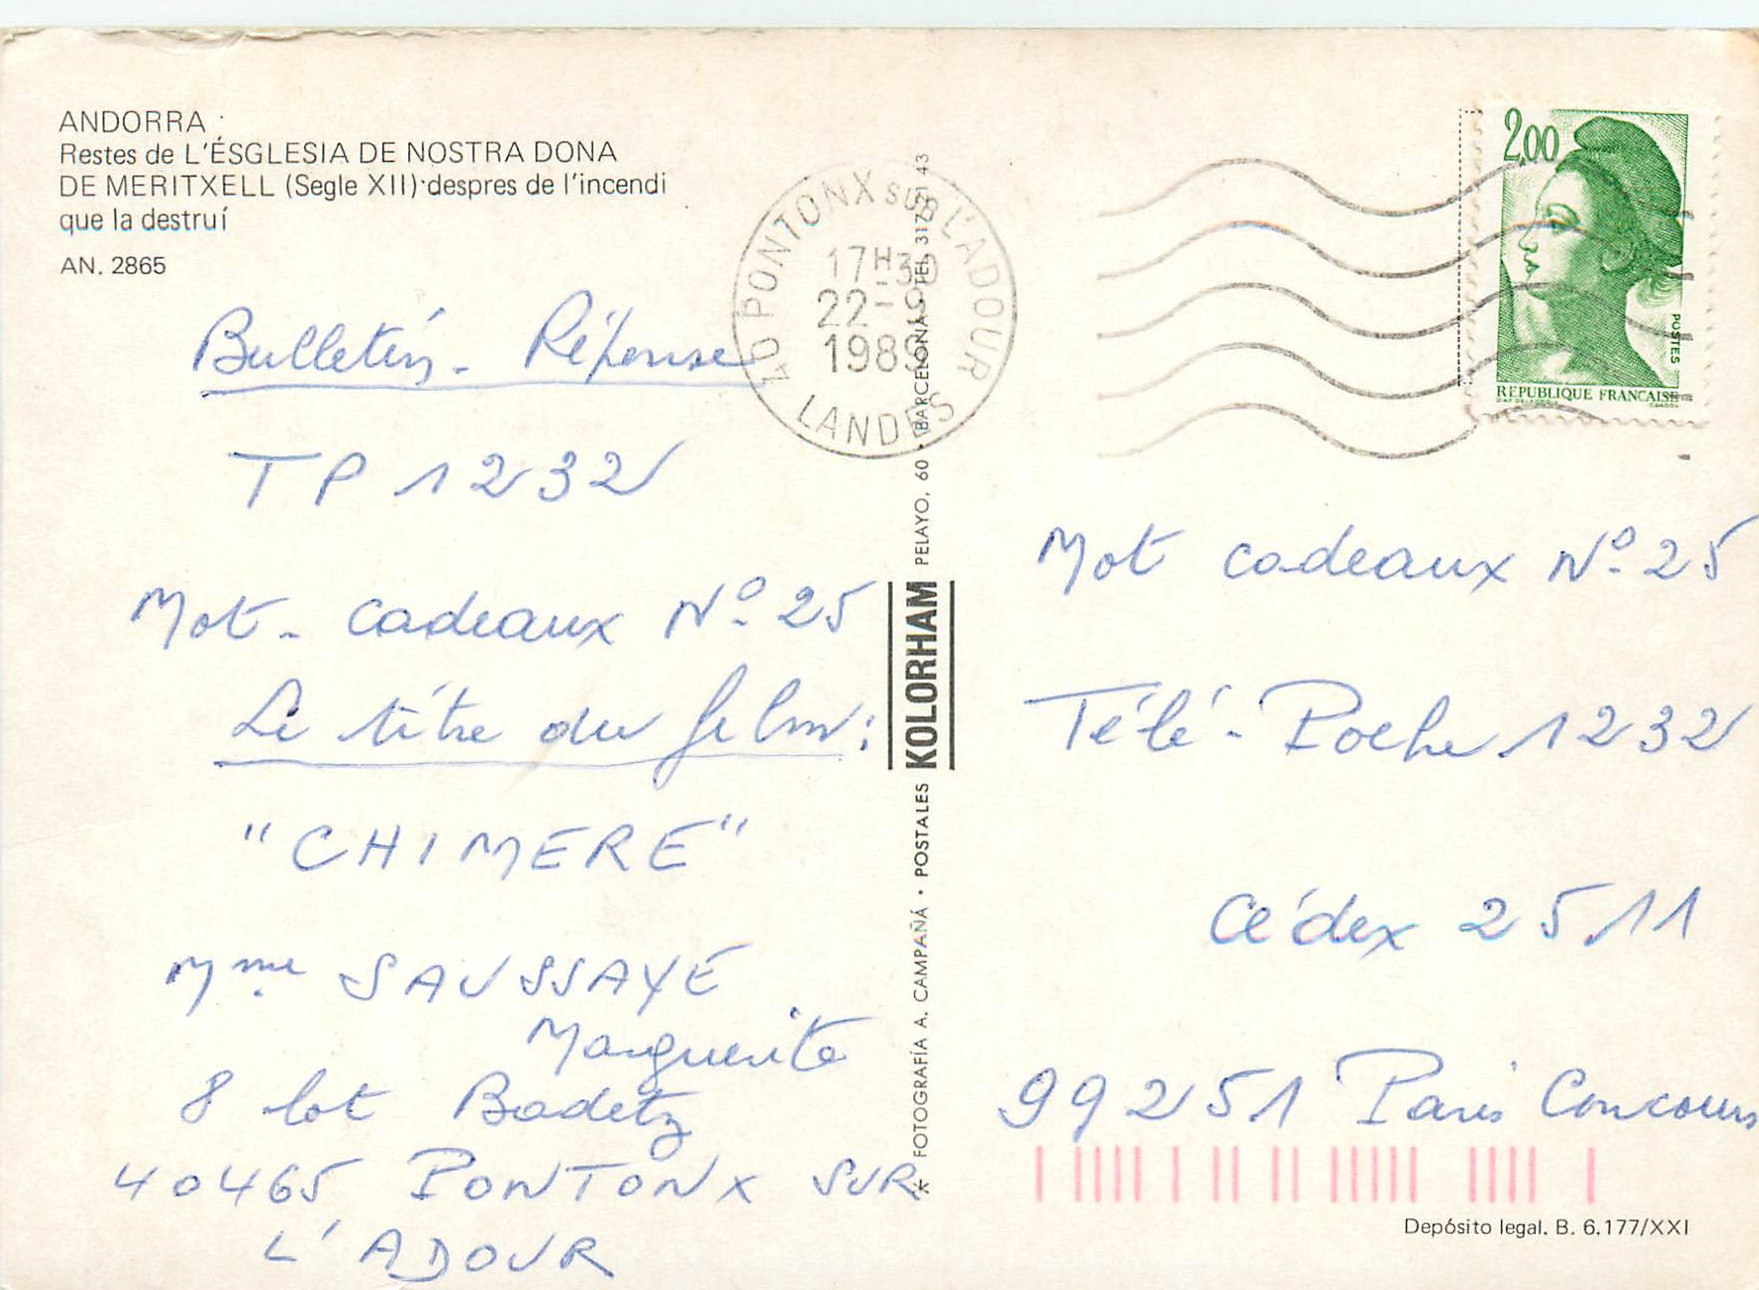 ANDORRA
Restes de L'ÉSGLESIA DE NOSTRA DONA
DE MERITXELL (Segle XII) despres de l'incendi
que la destruí
AN. 2865
Bulletin - Réponse
TP 1232
Mot - cadeaux N° 25
Le titre du film :
"CHIMERE"
Mme SAUSSAYE
Marguerite
8 lot Badetz
40465 PONTONX SUR
L'ADOUR
40 PONTONX SUR L'ADOUR
17H30
22-9
1989
LANDES
* FOTOGRAFÍA A. CAMPAÑÁ • POSTALES KOLORHAM PELAYO, 60 • BARCELONA
2,00
POSTES
REPUBLIQUE FRANÇAISE
Mot cadeaux N° 25
Télé - Poche 1232
Cédex 2511
99251 Paris Concours
Depósito legal. B. 6.177/XXI